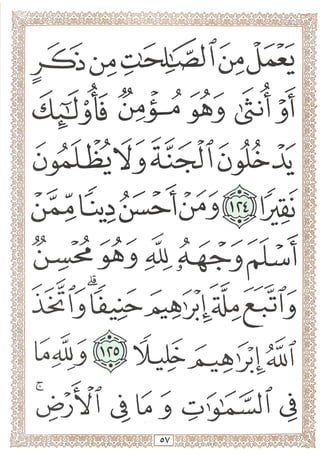 يَعْمَلْ مِنَ ٱلصَّـٰلِحَـٰتِ مِن ذَكَرٍ
أَوْ أُنثَىٰ وَهُوَ مُؤْمِنٌ فَأُو۟لَـٰٓئِكَ
يَدْخُلُونَ ٱلْجَنَّةَ وَلَا يُظْلَمُونَ
نَقِيرًا ١٢٤ وَمَنْ أَحْسَنُ دِينًا مِّمَّنْ
أَسْلَمَ وَجْهَهُۥ لِلَّهِ وَهُوَ مُحْسِنٌ
وَٱتَّبَعَ مِلَّةَ إِبْرَٰهِيمَ حَنِيفًا ۗ وَٱتَّخَذَ
ٱللَّهُ إِبْرَٰهِيمَ خَلِيلًا ١٢٥ وَلِلَّهِ مَا
فِى ٱلسَّمَـٰوَٰتِ وَمَا فِى ٱلْأَرْضِ ۚ
٥٧